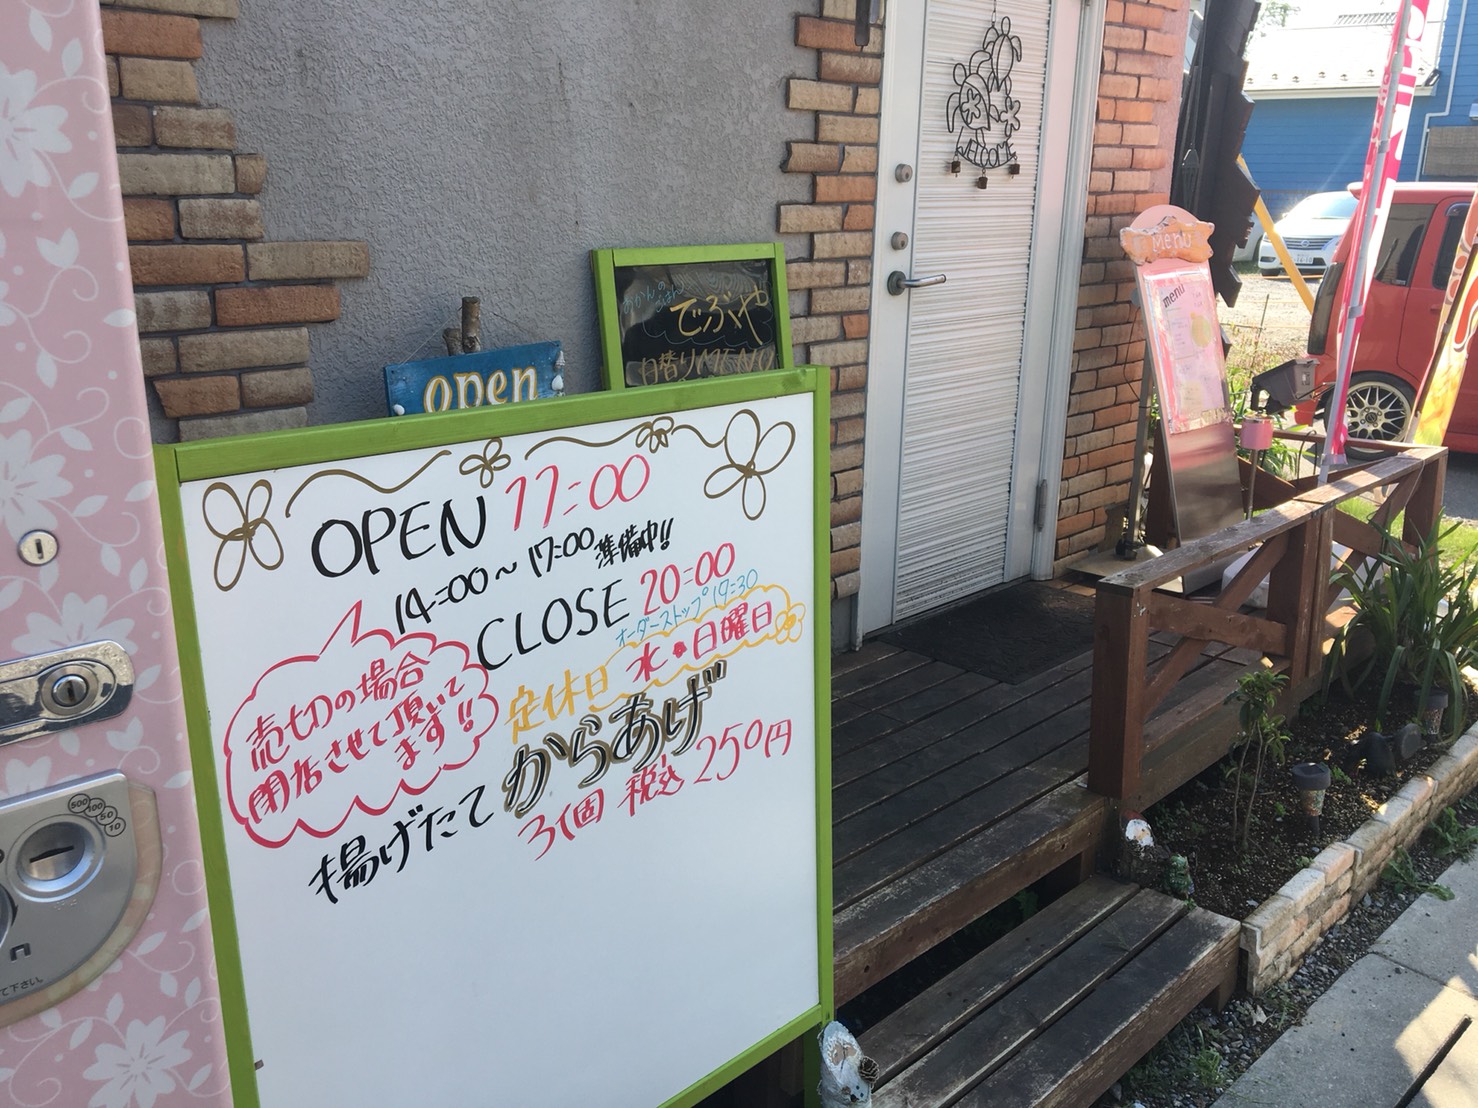 open
おかんのごはん
でぶや
日替りMENU
WELCOME
Menu
menu
OPEN 11:00
14:00～17:00 準備中!!
CLOSE 20:00
オーダーストップ19:30
定休日 水・日曜日
売切の場合
閉店させて頂いて
ます!!
揚げたて からあげ
3個 税込 250円
500
100
50
10
て下さい。